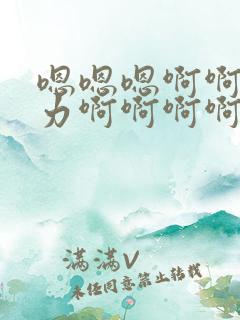 嗯嗯嗯啊啊
力啊啊啊啊
满满V
未经同意禁止转载